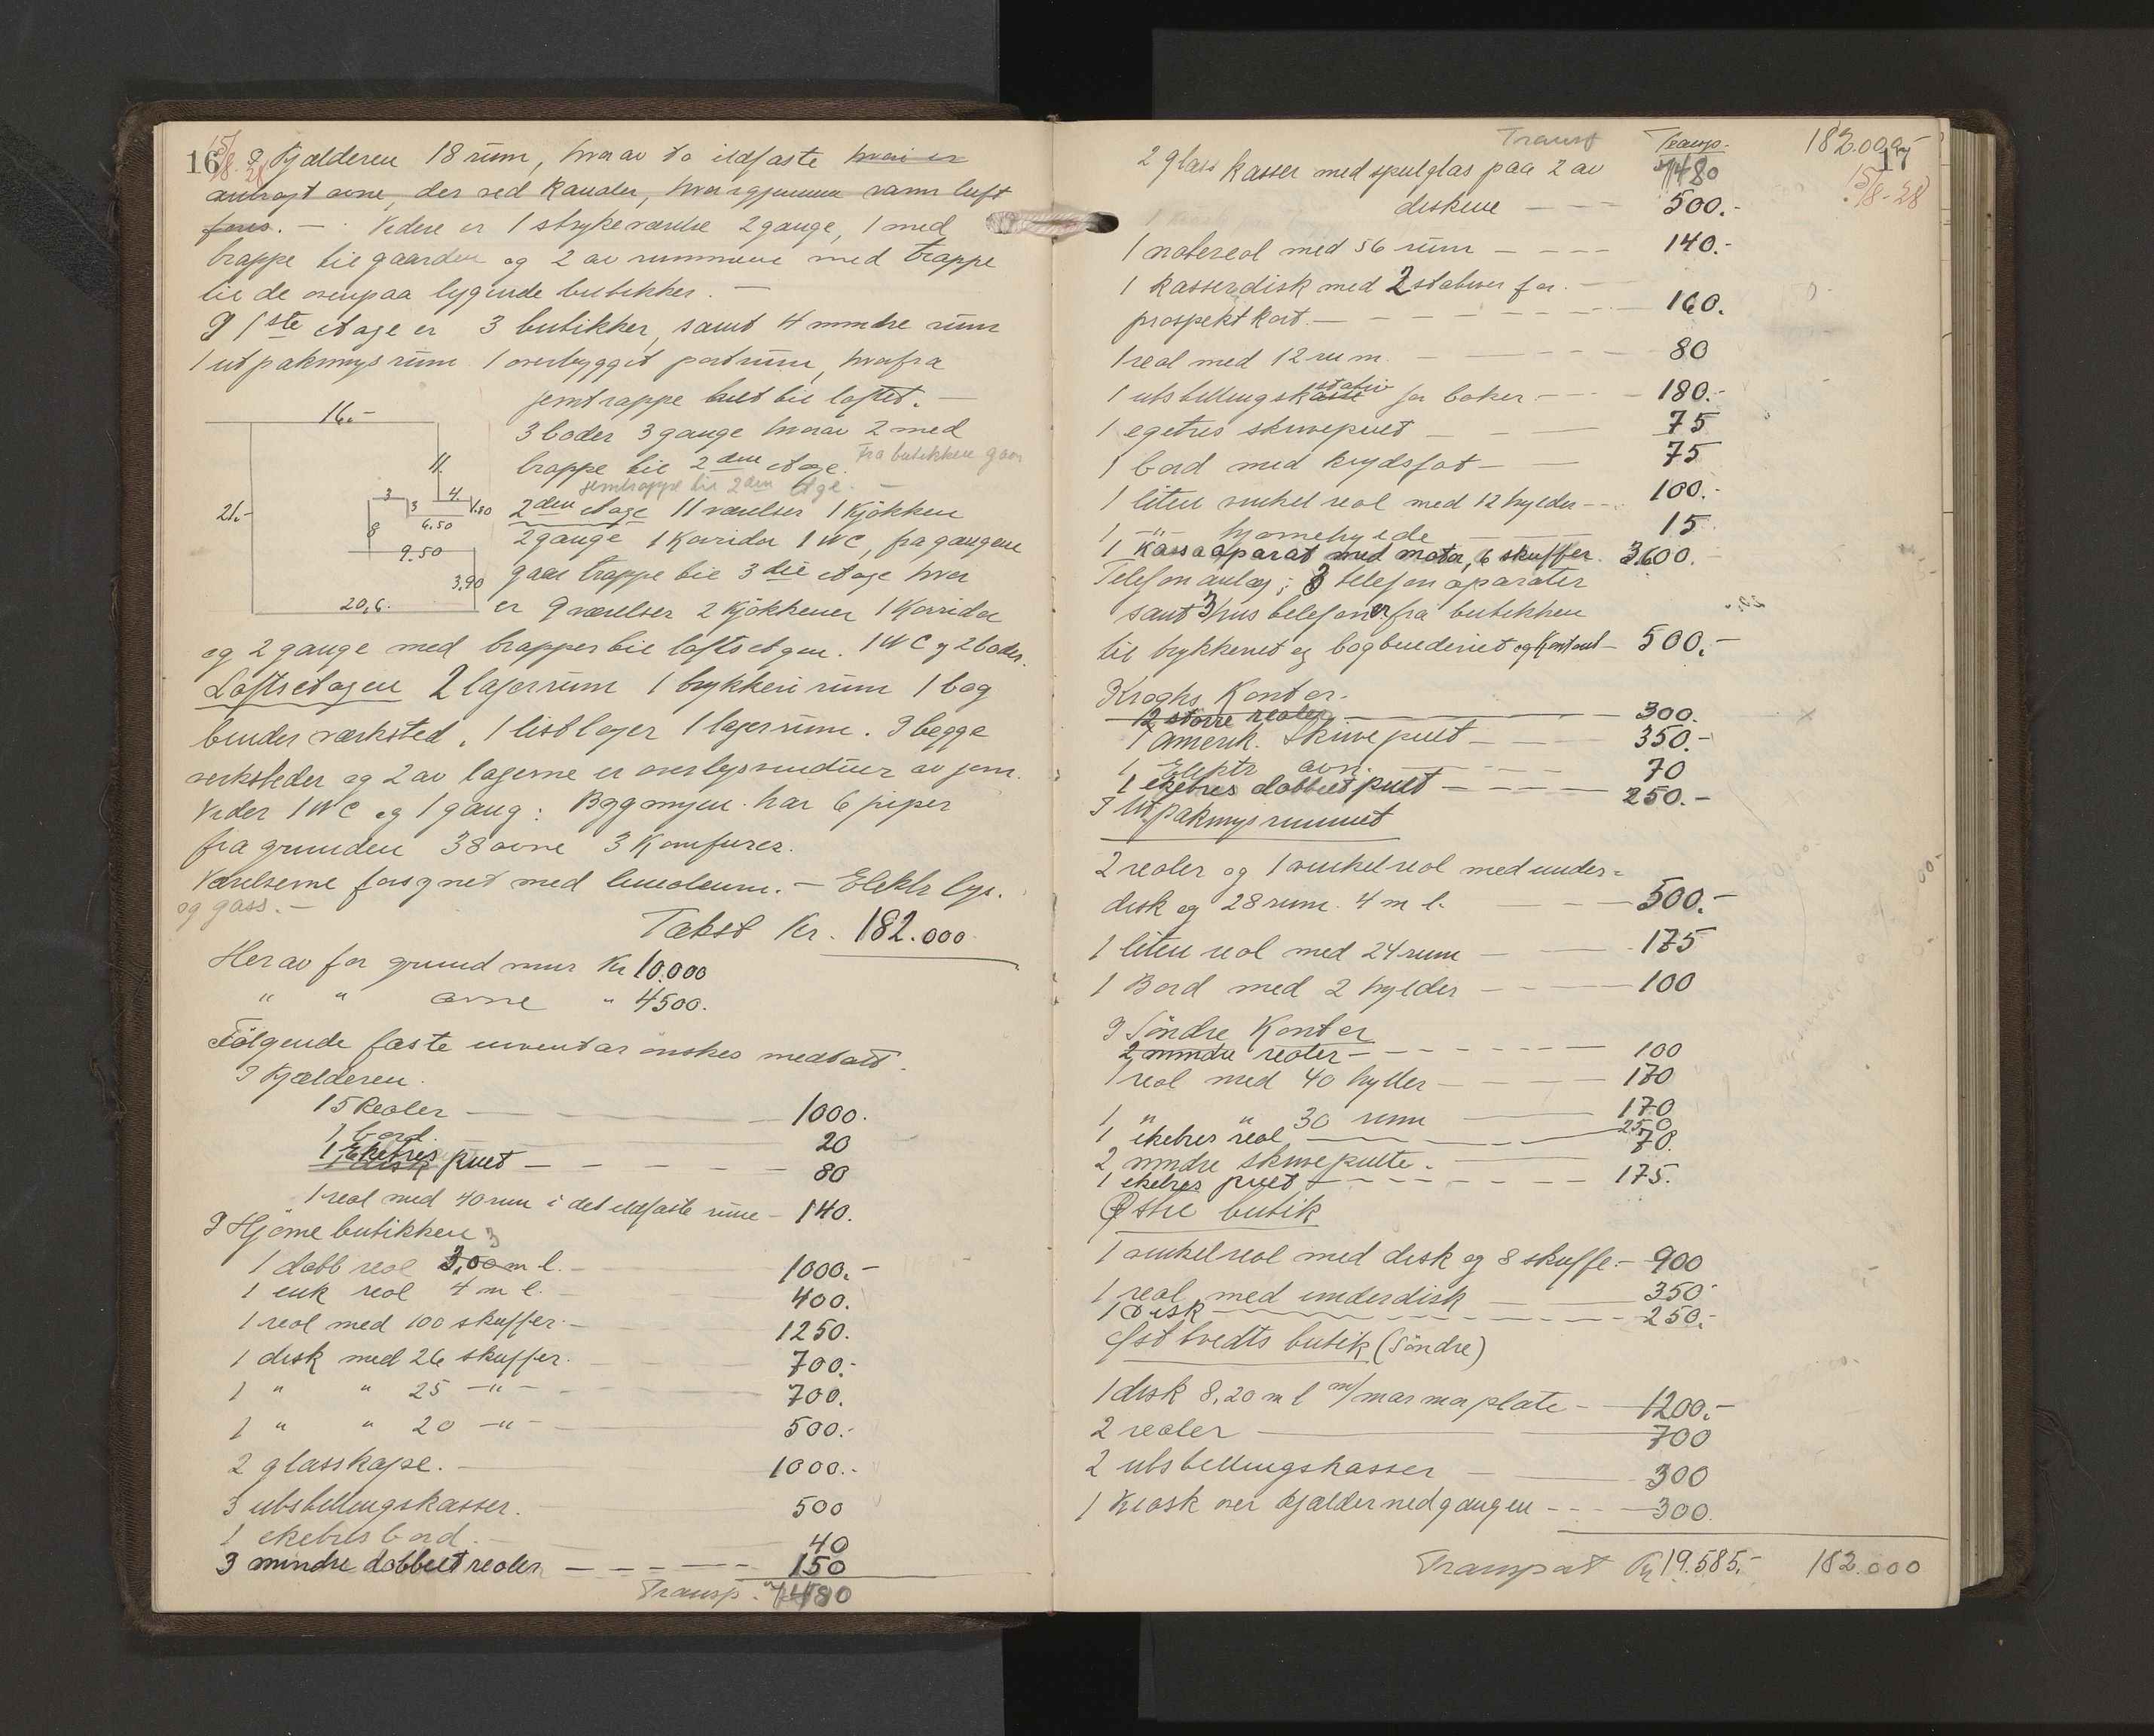 16
15/8. 28
I Kjælderen 18 rum, hvorav to ildfaste hvori er
anbragt ovne, der ved kanaler, hvorigjennem varm luft
føres. — Videre er 1 strykeværelse 2 gange, 1 med
trappe til gaarden og 2 av rummene med trappe
til de ovenpaa lygende butikker. —
I 1ste etage er 3 butikker, samt 4 mindre rum
1 utpakningsrum 1 overbygget portrum, hvorfra
jerntrappe helt til loftet. —
3 boder 3 gange hvorav 2 med
trappe til 2den etage. Fra butikken gaar
jerntrappe til 2den Etge. —
2den etage 11 værelser 1 Kjökken
2 gange 1 Korridor 1 WC, fra gangen
gaar trappe til 3die etage hvor
er 9 værelser 2 Kjökkener 1 Korridor
16.-
11.
21.-
3
3
4.
1.80
6.50
8
9.50
3.90
20,6.
og 2 gange med trapper til loftsetgen. 1 WC og 2 boder.
Loftsetagen 2 lagerrum 1 trykkeri rum 1 bog
binder værksted, 1 listlager 1 lagerrum. I begge
verksteder og 2 av lagerne er overlysvinduer av jern.
Vider 1 WC og 1 gang: Bygningen har 6 piper
fra grunden 38 ovne 3 Komfurer.
Værelserne forsynet med linoleum. — Elektr lys.
og gass. —
Takst Kr. 182.000
Herav for grund mur Kr 10.000
" " ovne " 4500.
Følgende faste inventar ønskes medtatt.
I Kjælderen.
15 Reoler — 1000.
1 bord. 20
1 Eketres pult — 80
1 reol med 40 rum i det ildfaste rum — 140.
I Hjørne butikken
1 dobb reol 3,00 m l. — 1000.-
1 enk reol 4 m l. 400.
1 reol med 100 skuffer. — 1250.
1 disk med 26 skuffer. 700.-
1 " " 25 —"— 700.
1 " " 20 —"— 500.-
2 glasskape. — 1000.-
3 utstillingskasser. 500
1 eketres bord. — 40
3 mindre dobbelt reoler — 150
Transp. 7480
Transt Transp. 182.000,-
17
15/8-28
2 glass kasser med speilglas paa 2 av 7480
diskene — 500.-
1 notereol med 56 rum — 140.-
1 kasserdisk med 2 stativer for.
prospektkort. — 160.
1 reol med 12 rum. — 80
1 utstillingskasse stativ for bøker. — 180.-
1 egetres skrivepult — 75
1 bord med krydsfot — 75
1 liten vinkel reol med 12 hylder — 100.-
1 " hjørnehylde 15
1 Kassaaparat med motor, 6 skuffer. 3.600.
Telefonanlæg; 3 telefon aparater
samt 3 hus telefoner fra butikken
til trykkeriet og bogbinderiet og Kontoret — 500.-
I Kroghs Kontor.
12 større reoler — 300.
1 amerik. Skrivepult — 350.-
1 Elektr ovn. — 70
1 eketres dobbeltpult — 250.-
I Utpakningsrummet
2 reoler og 1 vinkelreol med under=
disk og 28 rum. 4 m l. — 500.-
1 liten reol med 24 rum — 175
1 Bord med 2 hylder — 100
I Söndre Kontor
2 mindre reoler — 100
1 reol med 40 hyller — 170
1 " " 30 rum — 170
1 eketres reol — 250
2 mindre skrivepulte. — 70.
1 eketres pult — 175.
Østre butik
1 vinkelreol med disk og 8 skuffe. — 900
1 reol med underdisk — 350
1 Disk — 250.-
Østtvedts butik (Söndre)
1 disk 8,20 m l m/marmorplate — 1200.-
2 reoler — 700
2 utstillingskasser — 300
1 Kiosk over kjældernedgangen — 300.
Transport Kr 19.585.- 182.000